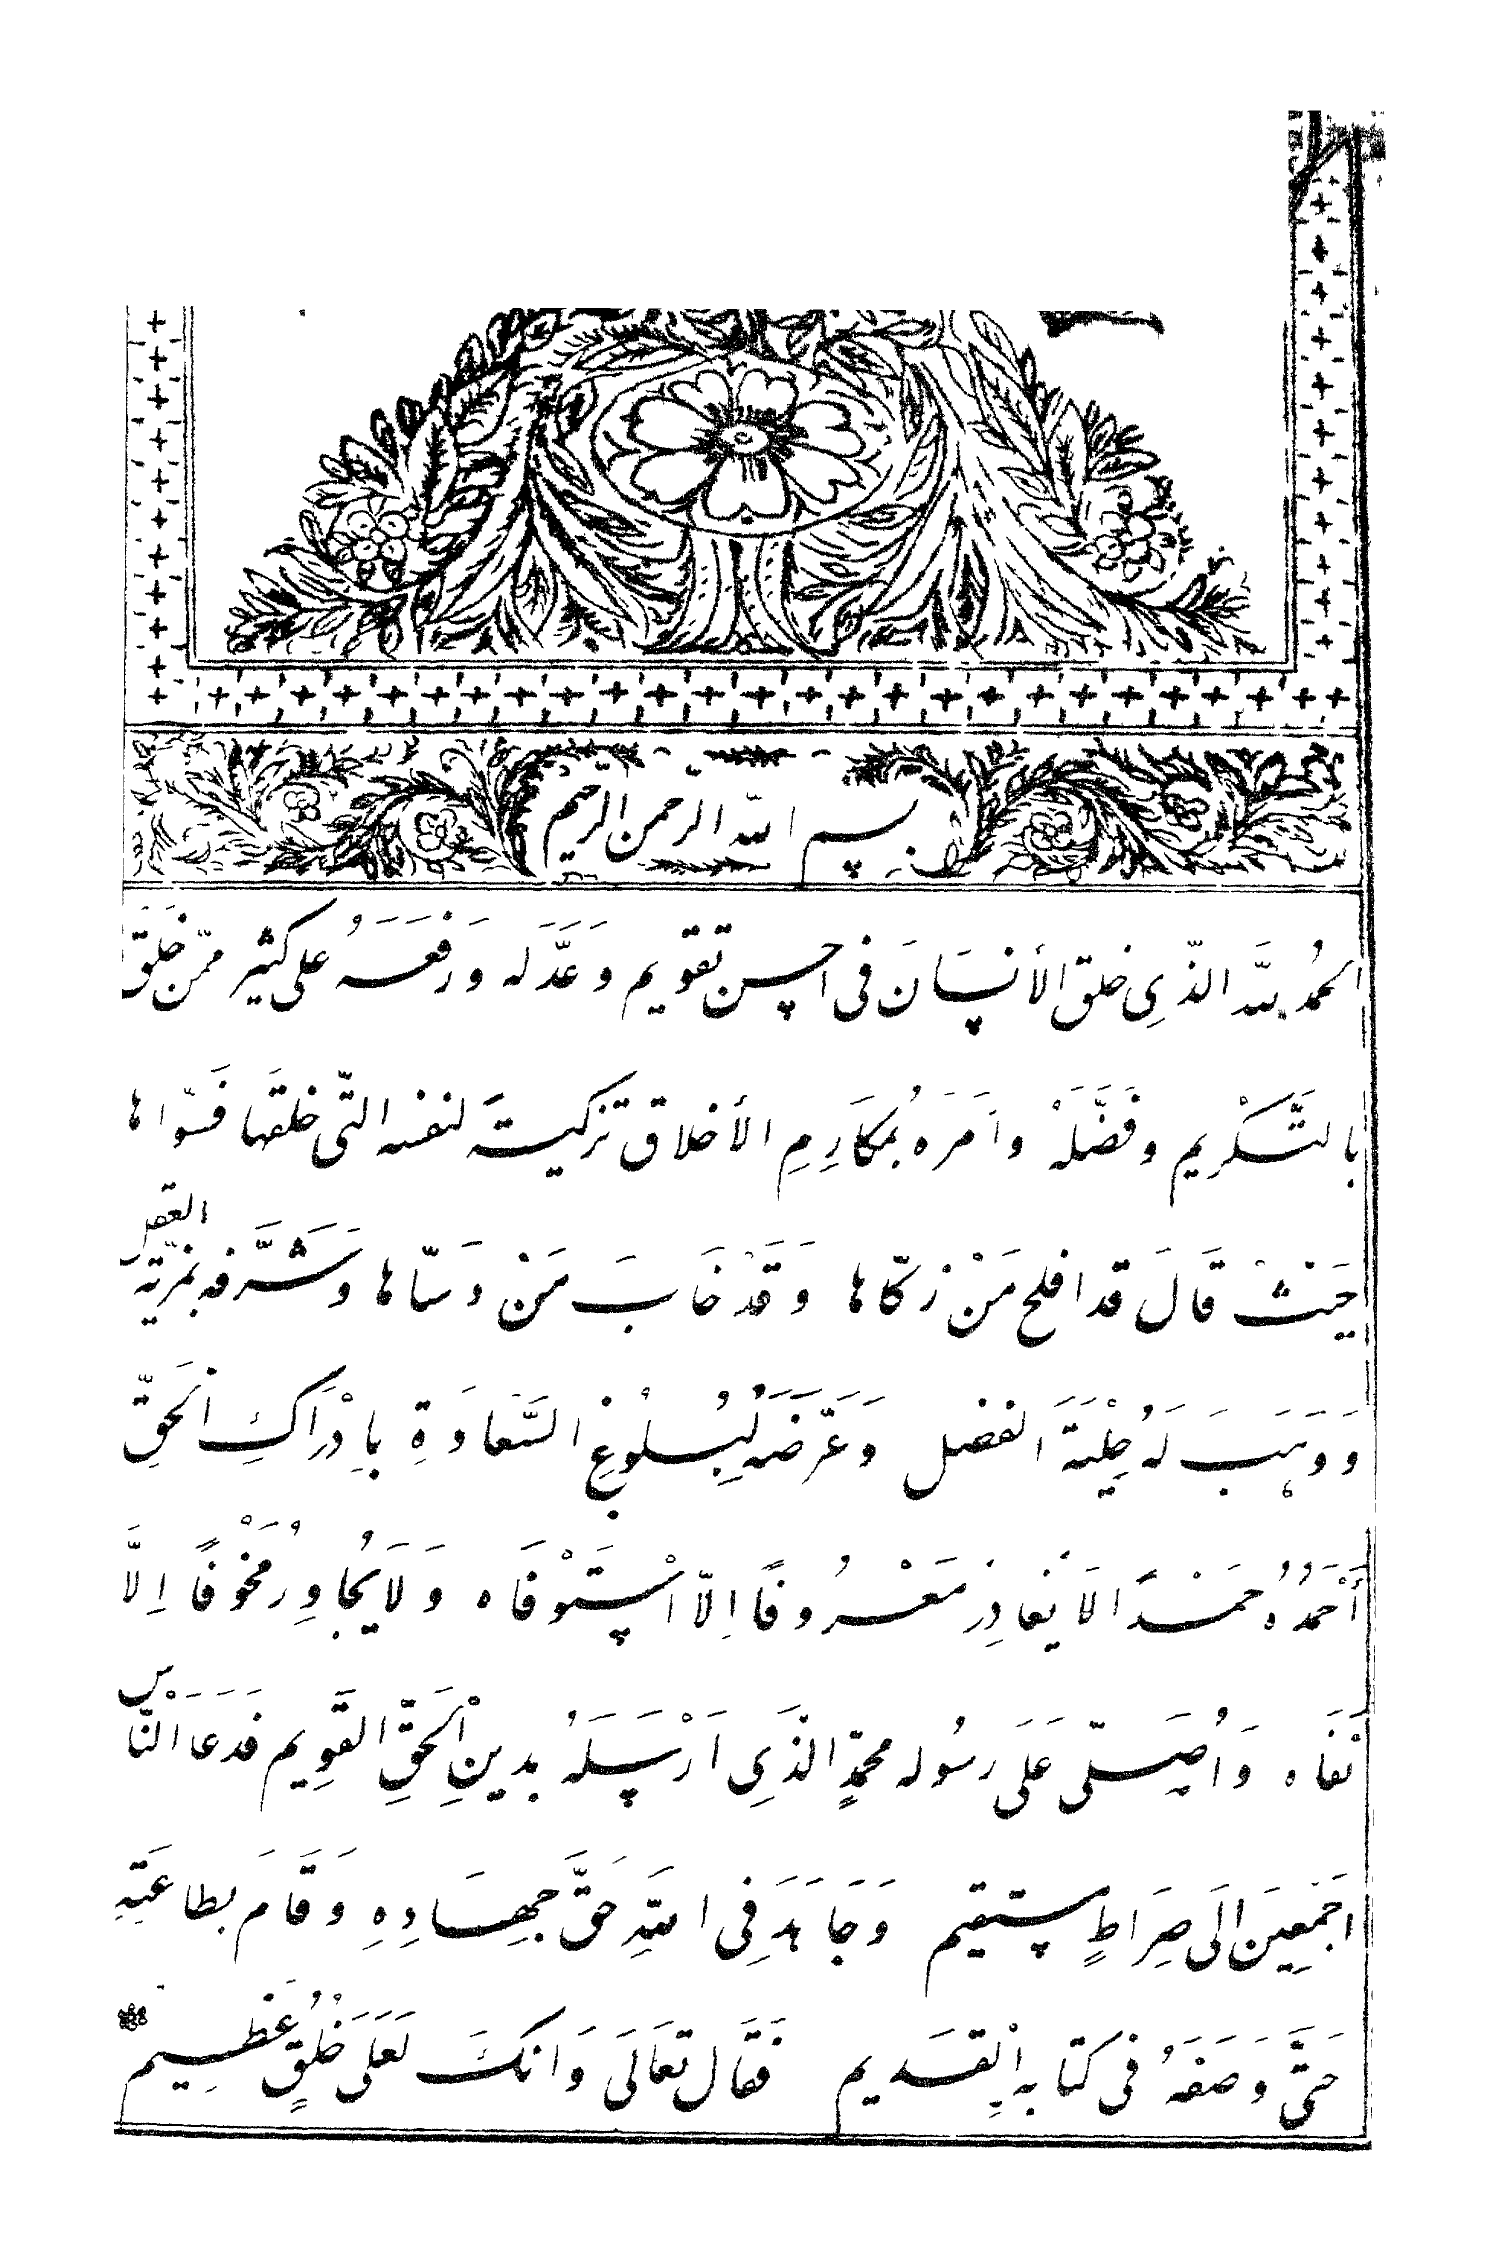 بسم الله الرحمن الرحيم
الحمدُ للهِ الذّي خلق الأنسَانَ في احسن تقويم وعَدَّلَه ورفعَهُ على كثير ممّن خَلقَ
بالتَّكْريم وفَضَّلَهُ وامَرَهُ بمكَارِمِ الأخلاق تزكيةً لنفسه التّي خلقَها فسوّاها
حَيثْ قَالَ قد افلح مَنْ زكّاها وَقَدْ خَابَ مَنْ دَسّاها وشَرَّفه بمزيّة العقل
وَوَهَبَ لَهُ حِلْيَةَ الفضل وَعَرَّضَه لِبُلوُغِ السَّعَادَةِ بِاِدْرَاكِ الْحَقِّ
أَحْمَدُهُ حَمْدًا لَا يُغَادِرُ مَعْرُوفًا اِلّا اسْتَوْفَاه وَلَا يُجَاوِزُ مَخُوْفًا اِلَّا
نَفَاه وَاُصَلّي عَلَى رسُوله محمّدٍ الذَّي اَرْسَلَهُ بدينِ الْحَقِّ القَويم فَدَعَا الْنَّاس
اجَمعِينَ اِلَى صِرَاطٍ مستقيم وَجَاهَدَ فِي اللهِ حَقَّ جِهَادِهِ وَقَامَ بطاعَتِهِ
حَتَّى وَصَفَهُ في كتابه القَديم فَقَال تعَالَى وَانكَ لَعَلَى خُلُقٍ عَظِيم